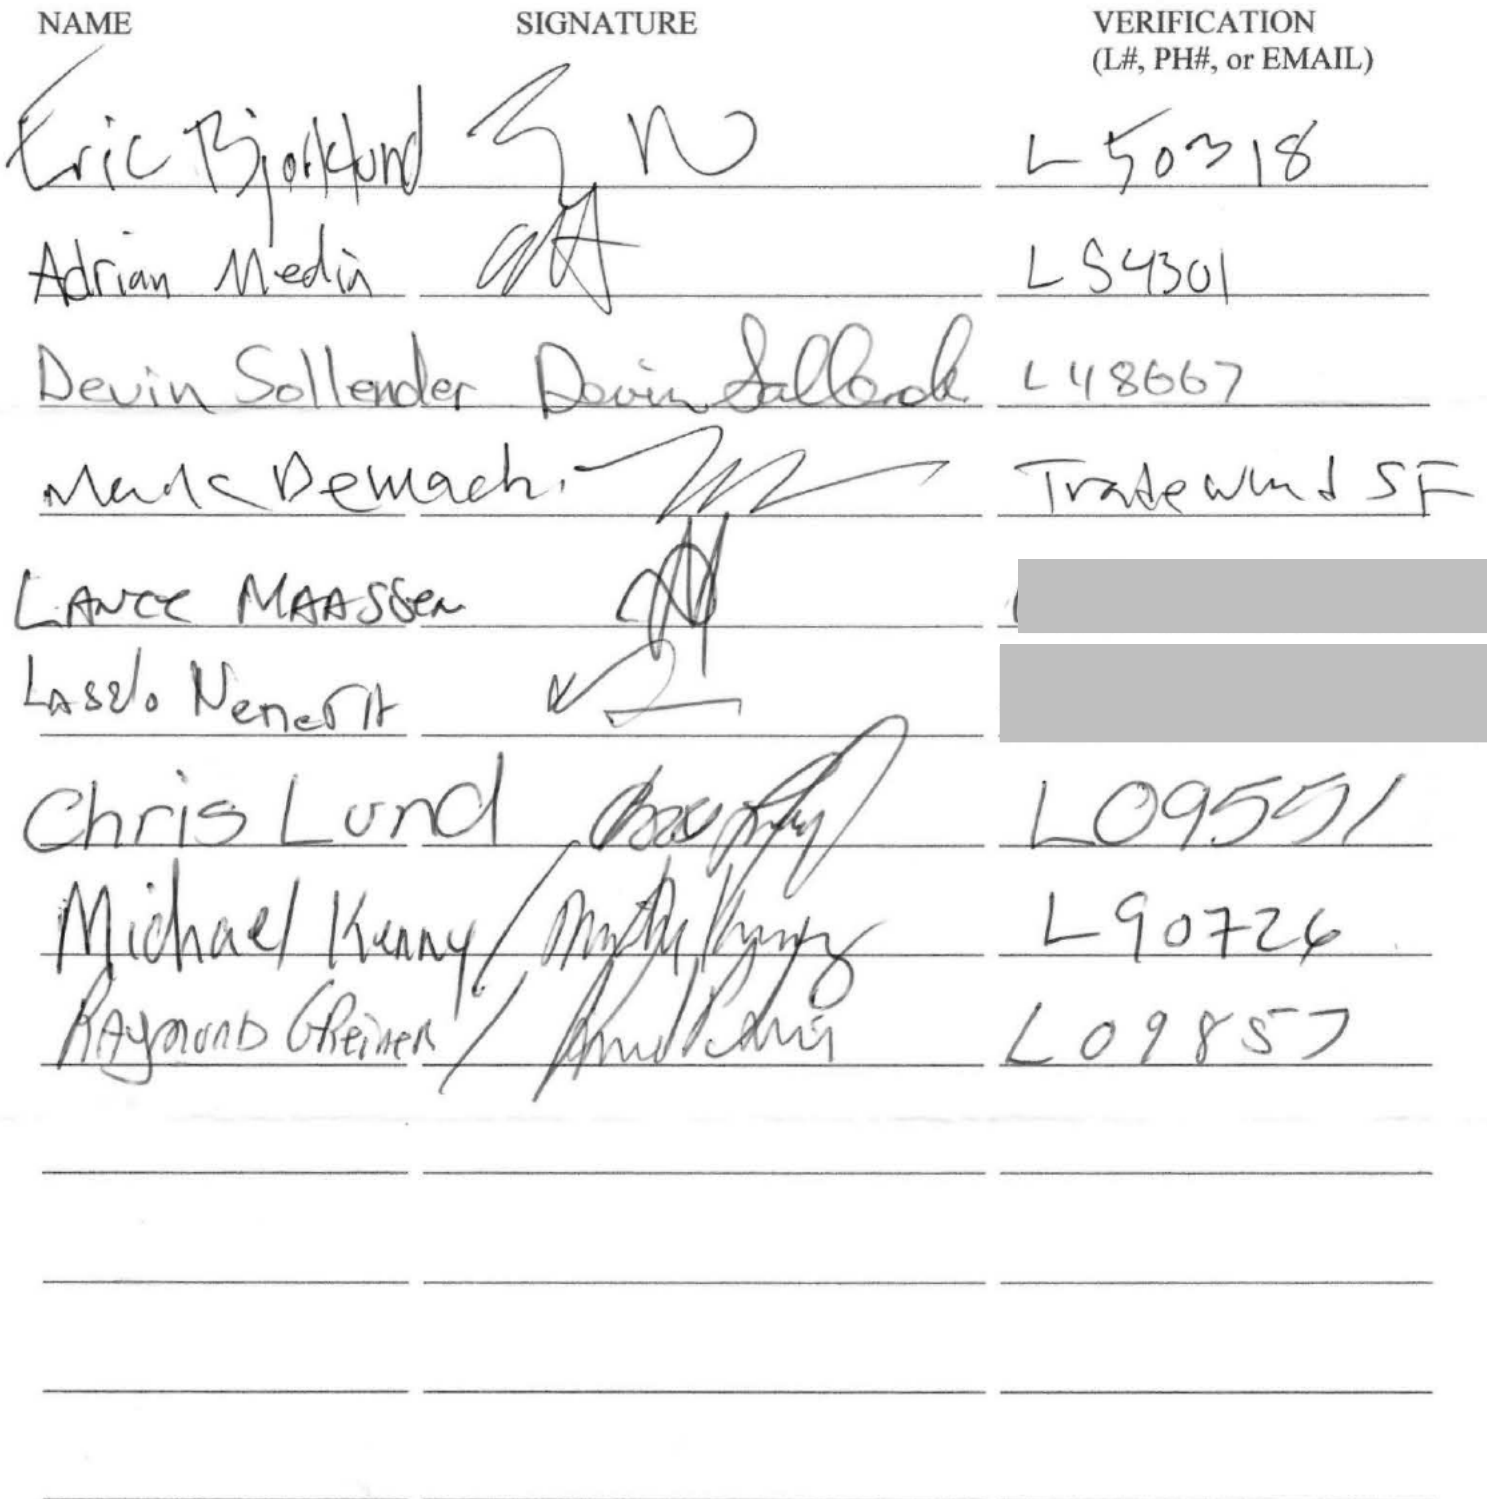 NAME SIGNATURE VERIFICATION
(L#, PH#, or EMAIL)
Eric Bjorklund L 50318
Adrian Media L 54301
Devin Sollender Devin Sollender L48667
Mark Demachi Tradewind SF
LANCE MAASSEN
LASZLO
Chris Lund L09551
Michael Kenny / L90726
RAYMOND GREINER / L09857